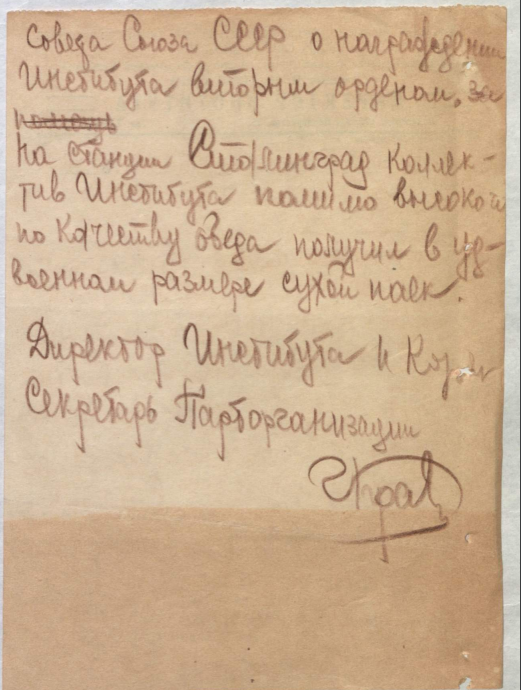 Совета Союза СССР о награждении
Института вторым орденом, за
на станции Сталинград коллек-
тив Института помимо высокого
по качеству обеда получил в уд-
военном размере сухой паек.
Директор Института и
Секретарь Парторганизации